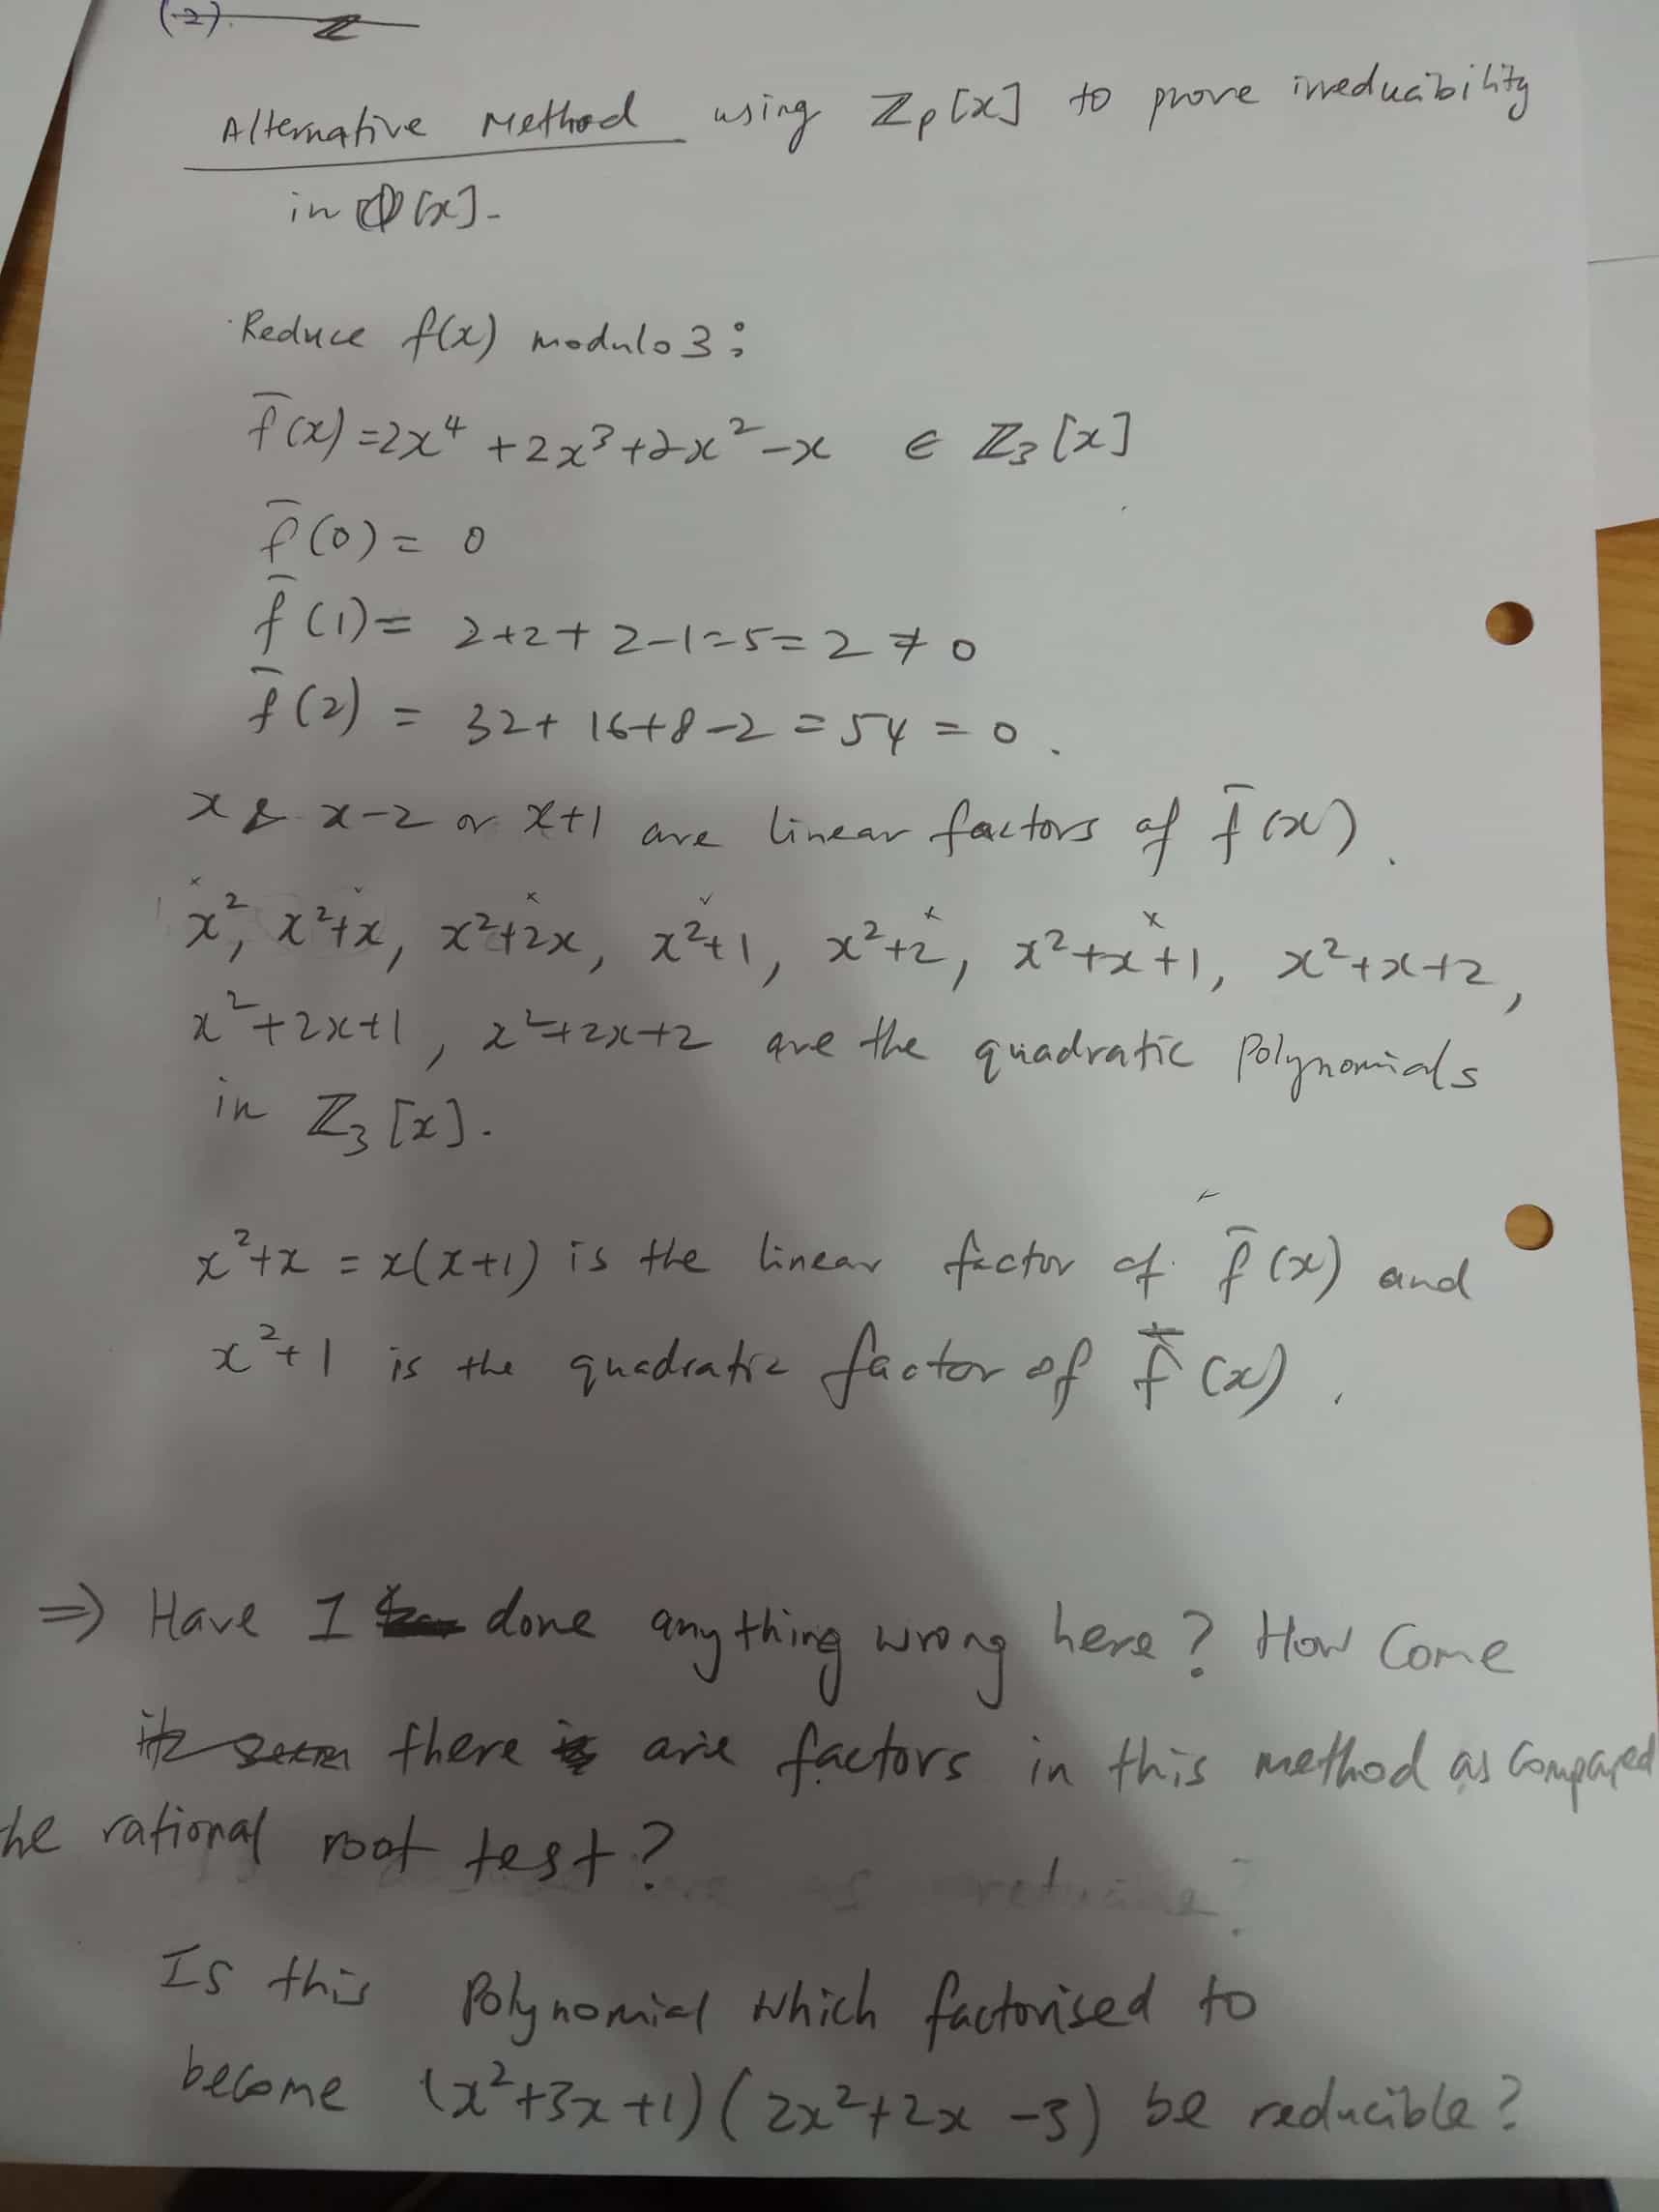 (2).
Alternative Method using ℤp[x] to prove irreducibility
in ℚ[x].
Reduce f(x) modulo 3:
f̄(x) = 2x⁴ + 2x³ + 2x² - x ∈ ℤ₃[x]
f̄(0) = 0
f̄(1) = 2+2+2-1=5=2 ≠ 0
f̄(2) = 32+16+8-2=54=0.
x & x-2 or x+1 are linear factors of f̄(x).
x², x²+x, x²+2x, x²+1, x²+2, x²+x+1, x²+x+2,
x²+2x+1, x²+2x+2 are the quadratic polynomials
in ℤ₃[x].
x²+x = x(x+1) is the linear factor of f̄(x) and
x²+1 is the quadratic factor of f̄(x).
⇒ Have I done anything wrong here? How Come
there are factors in this method as compared
he rational root test?
Is this Polynomial which factorised to
become (x²+3x+1)(2x²+2x-3) be reducible?